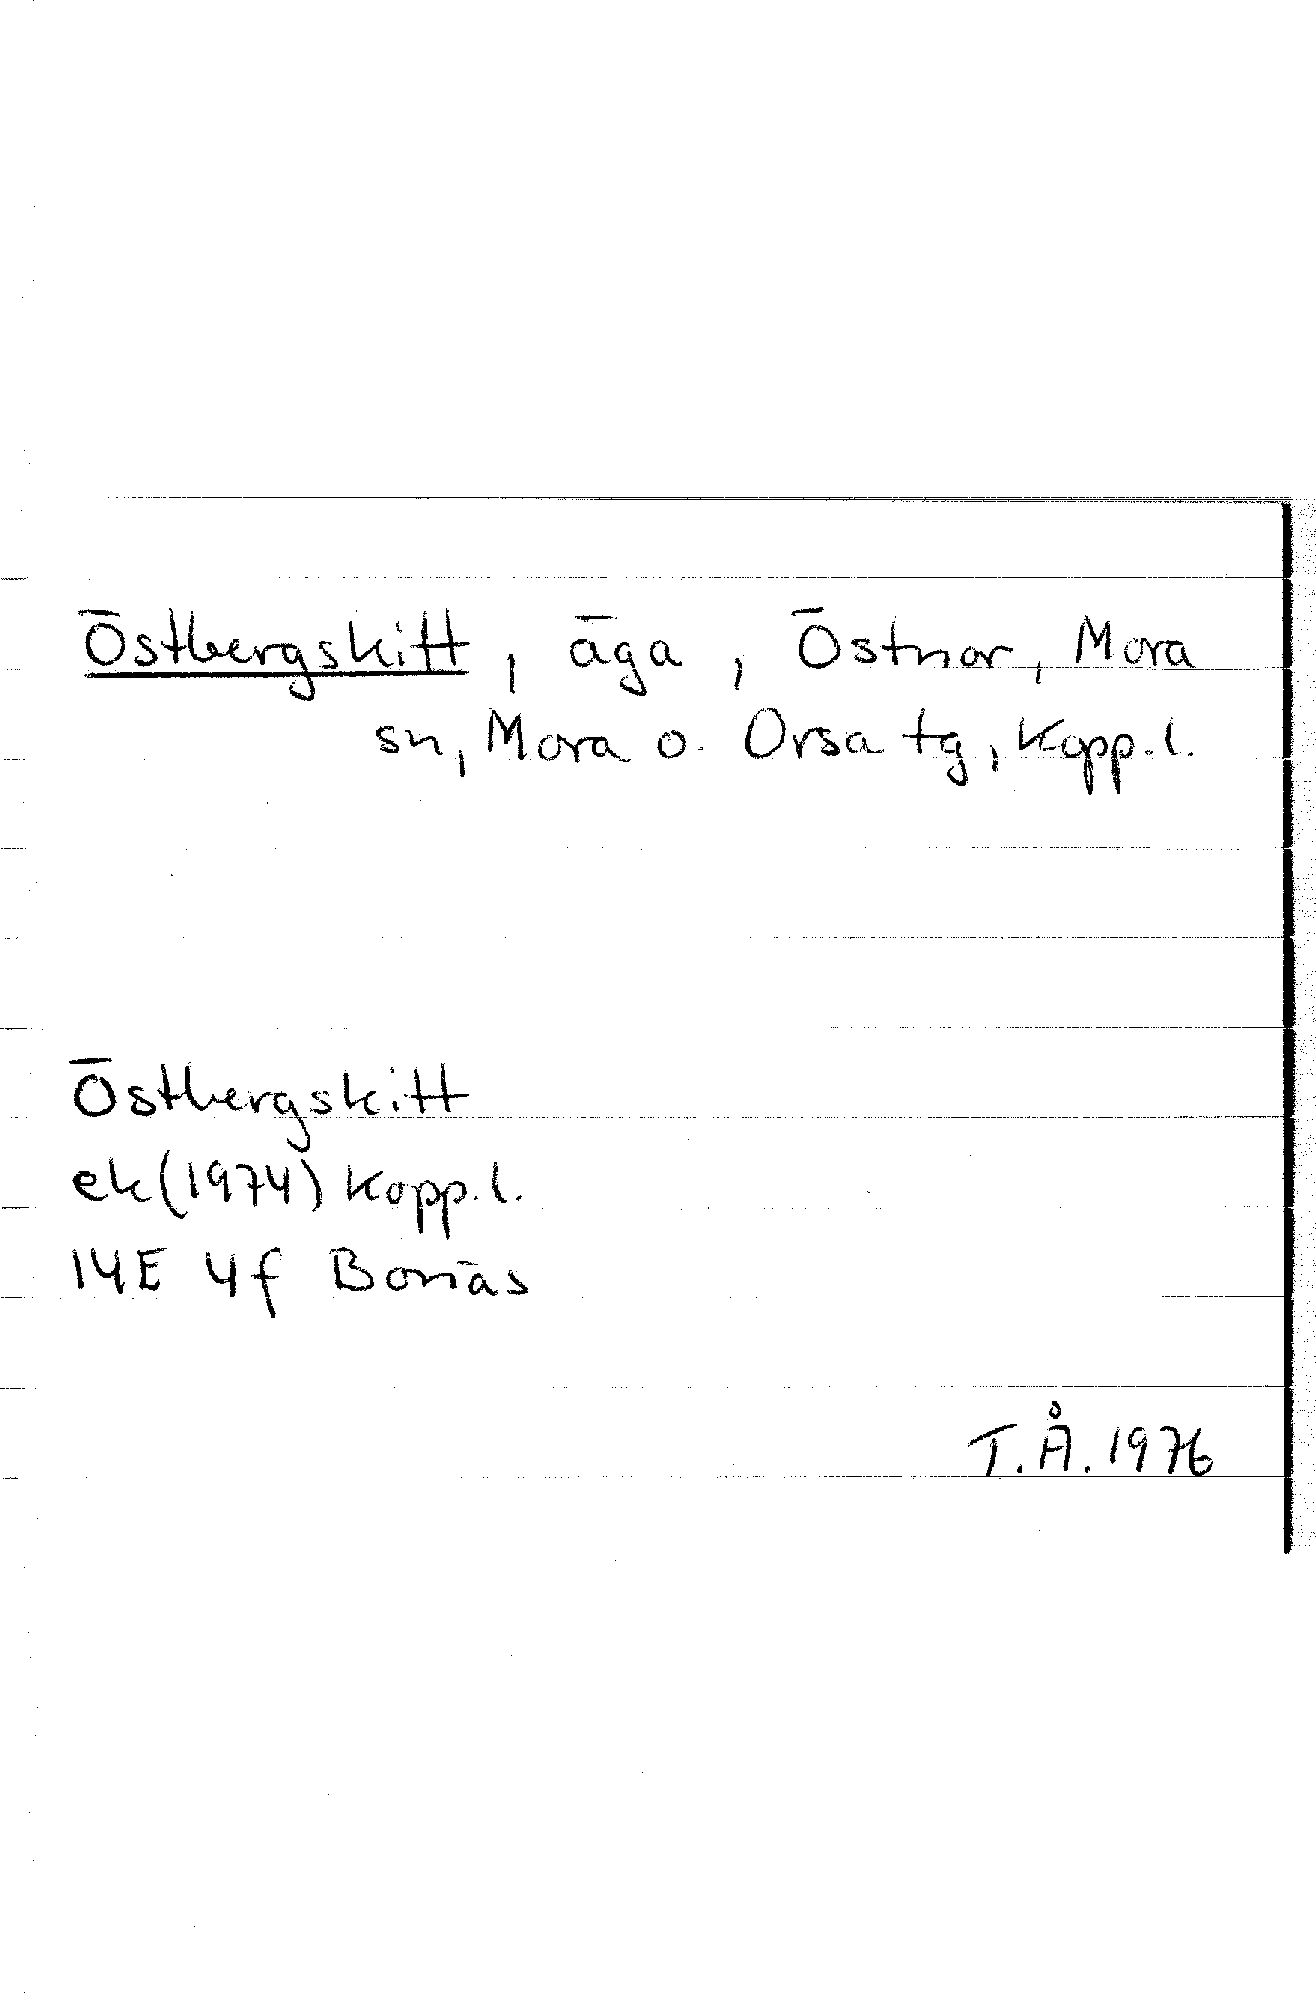 Östbergskitt, äga, Östnor, Mora
sn, Mora o. Orsa tg, Kopp.l.
Östbergskitt
ek(1974) Kopp.l.
14E 4f Bonäs
T.Å.1976